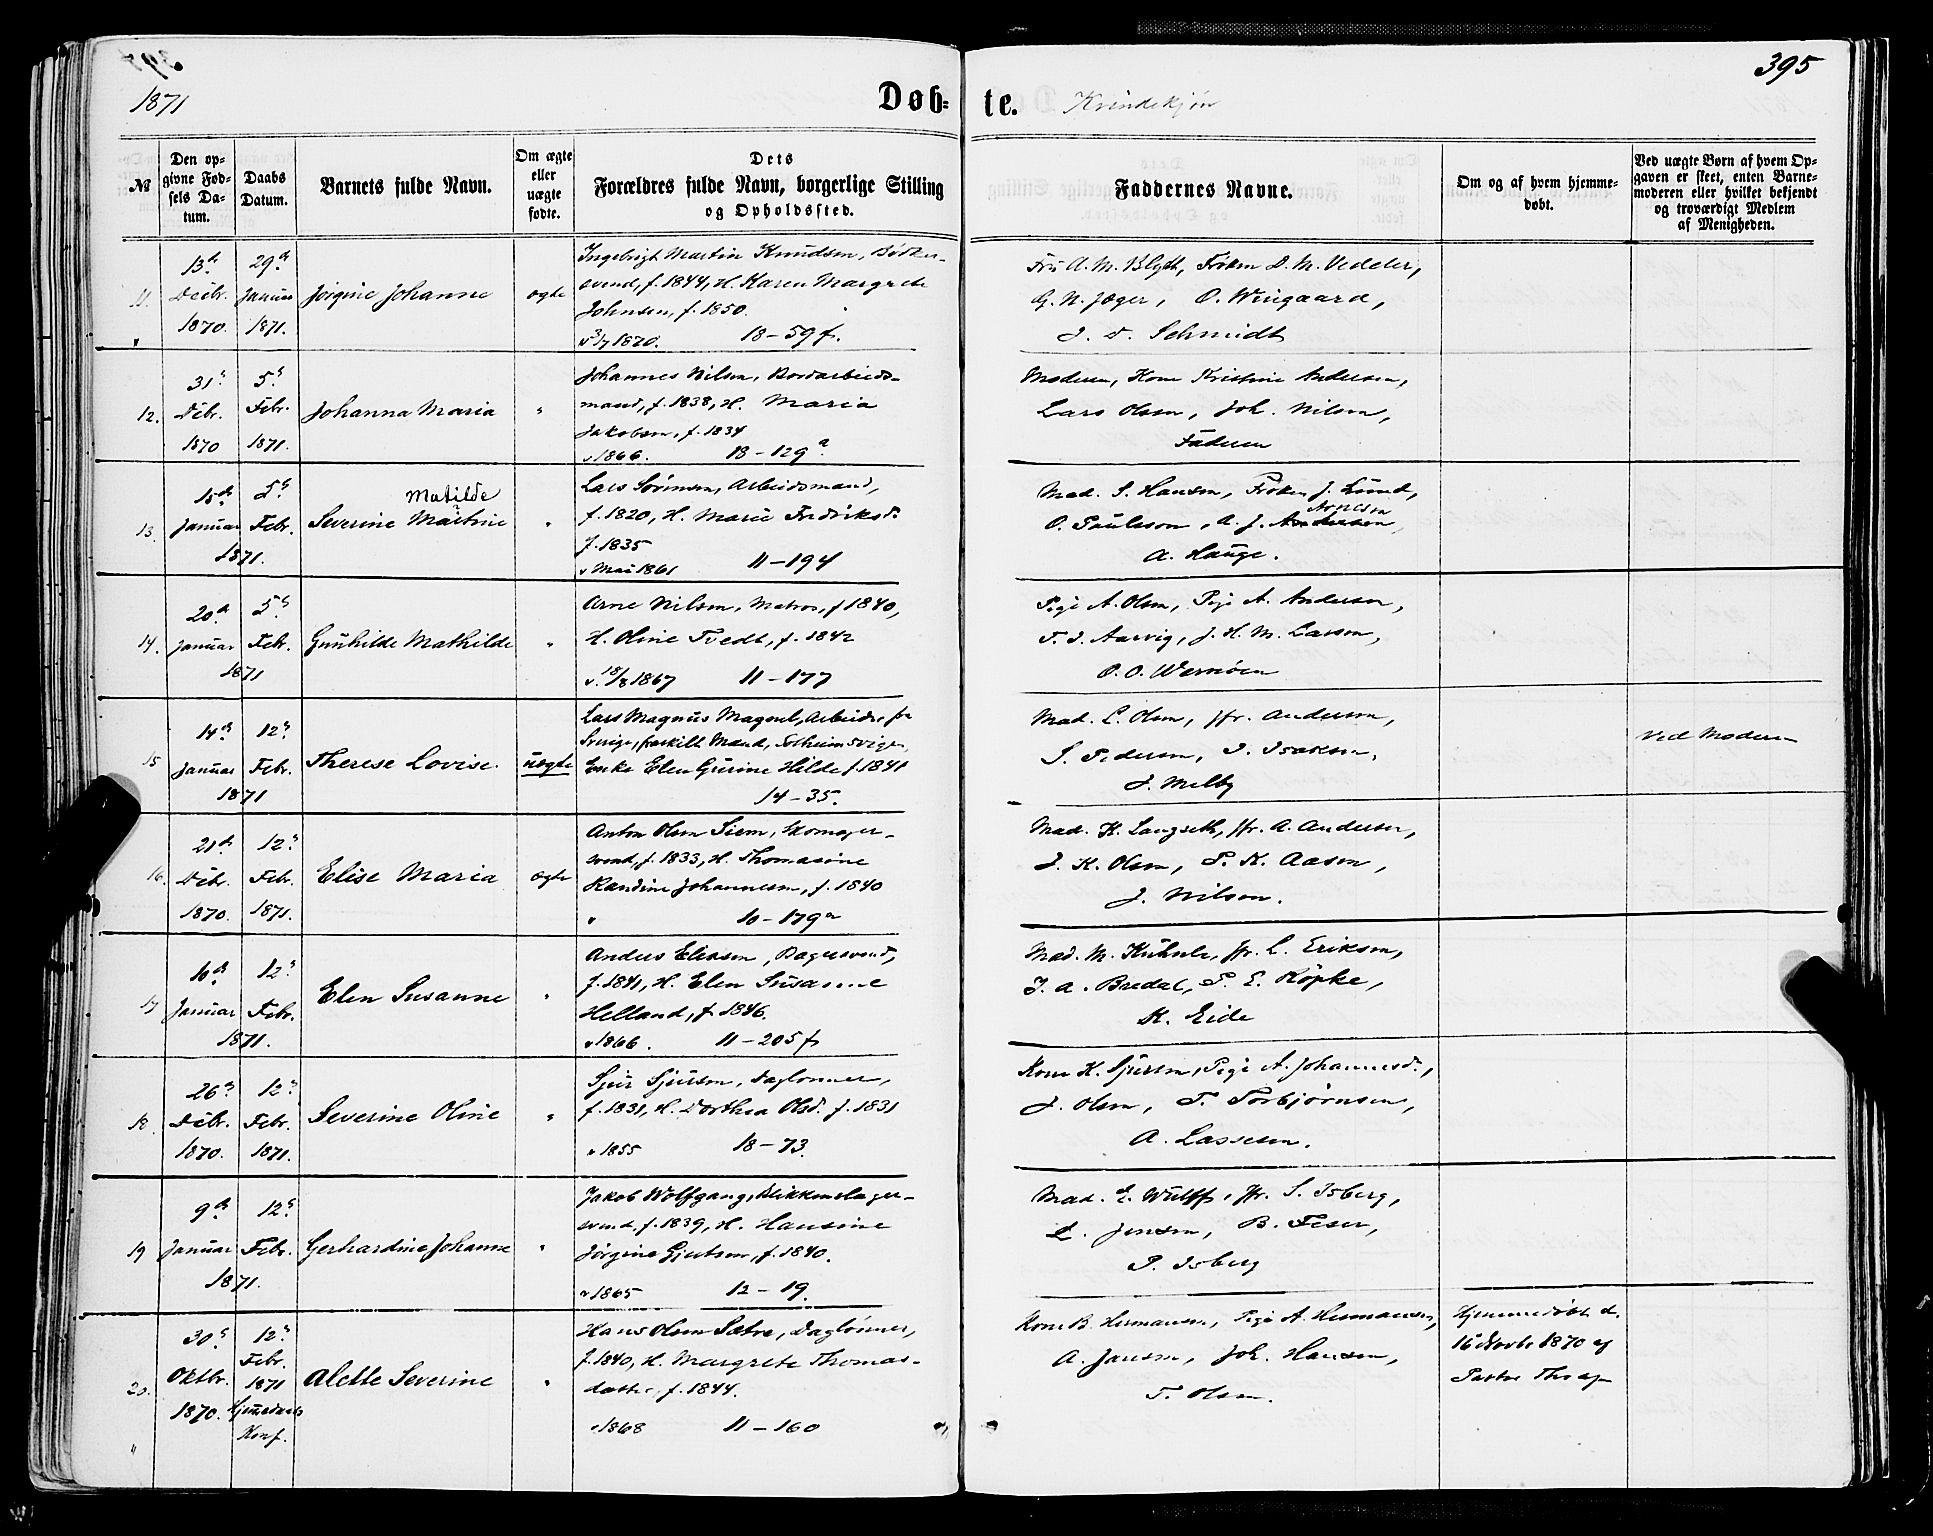 395
1871
Døb-
te.
Kvindekjøn
№
Den op-
givne Fød-
sels Da-
tum.
Daabs
Datum.
Barnets fulde Navn.
Om ægte
eller
uægte
fødte.
Dets
Forældres fulde Navn, borgerlige Stilling
og Opholdssted.
Faddernes Navne.
Om og af hvem hjemme-
døbt.
Ved uægte Børn af hvem Op-
gaven er skeet, enten Barne-
moderen eller hvilket bekjendt
og troværdigt Medlem
af Menigheden.
11.
13de
Decbr.
1870.
29de
Januar
1871.
Jørgine Johanne
ægte
Ingebrigt Martin Knudsen, Bødker-
svend, f. 1844, H. Karen Margrete
Johnsen, f. 1850.
v 3/7 1870. 13-59 f.
Fru A. M. Blydt, Frøken D. M. Vedeler,
G. N. Jæger, O. Wingaard,
J. D. Schmidt
12.
31te
Decbr.
1870
5te
Febr.
1871.
Johanna Maria
"
Johannes Nilsen, Bordarbeids-
mand, f. 1838, H. Maria
Jakobsen, f. 1834
v 1866. 13-129 a.
Moderen, Kone Kristine Andersen,
Lars Olsen, Joh. Nilsen,
Faderen
13.
15de
Januar
1871.
5te
Febr.
Matilde
Severine Martine
"
Lars Sørensen, Arbeidsmand,
f. 1820, H. Marie Fredriksd.
f. 1835
v Mai 1861 11-194
Mad. S. Hansen, Frøken J. Lund,
Arnesen
O. Paulsson, A. J. Andersen,
A. Hauge.
14.
20de
Januar
1871
5te
Febr.
Gunhilde Mathilde
"
Arne Nilsen, Matros, f 1840,
H. Oline Tvedt, f. 1842
v. 18/8 1867 11-177
Pige A. Olsen, Pige A. Andersen,
T. J. Aarvig, J. H. M. Larsen,
O. O. Wernøen
15
14de
Januar
1871
12te
Febr.
Therese Lovise.
uægte
Lars Magnus Magnel, Arbeider fra
Sverige, fraskilt Mand, Solheimsvigen,
Enke Elen Gurine Hilde f. 1841
14-35.
Mad. L. Olsen, Jfr. Andersen,
S. Pedersen, I. Isaksen,
J. Melby
Ved Moderen
16.
21de
Decbr.
1870.
12te
Febr.
1871.
Elise Maria
ægte
Anton Olsen Siem, Skomager-
svend, f. 1833, H. Thomasine
Randine Johannesen, f. 1840
" 10-179 a
Mad. K. Langseth, Jfr. A. Andersen,
J. K. Olsen, P. K. Aasen,
J. Nilson.
17
10de
Januar
1871.
12te
Febr.
Elen Susanne
"
Anders Eliasen, Bagersvend,
f. 1841, H. Elen Susanne
Helland, f. 1846.
v 1866. 11-205 f
Mad. M. Kuhnle, Jfr. L. Eriksen,
J. A. Bredal, P. E. Köpke,
K. Eide
18.
26te
Decbr.
1870.
12te
Febr.
1871.
Severine Oline
"
Sjur Sjursen, Daglønner,
f. 1831, H. Dorthea Olsd. f. 1831
v 1855 18-73.
Kone K. Sjursen, Pige A. Johannesd.,
J. Olsen, T. Torbjørnsen,
A. Lassesen.
19
9de
Januar
1871.
12te
Febr.
Gerhardine Johanne
"
Jakob Wolfgang, Blikkenslager-
svend, f. 1839, H. Hansine
Jørgine Gjertsen, f. 1840.
v 1865 12-19.
Mad. E. Wulff, Jfr. S. Isberg,
L. Jensen, B. Feser,
P. Isberg
20.
30te
Oktbr.
1870.
12te
Febr.
1871
Hjemmedaab
Konf.
Alette Severine
"
Hans Olsen Sætre, Daglønner,
f. 1840, H. Margrete Thomas-
datter f. 1844.
v 1868 11-160
Kone B. Hermansen, Pige A. Hermansen,
A. Jansen, Joh. Hansen,
T. Olsen.
Hjemmedøbt d.
16 Novbr 1870 af
Pastor Thrap